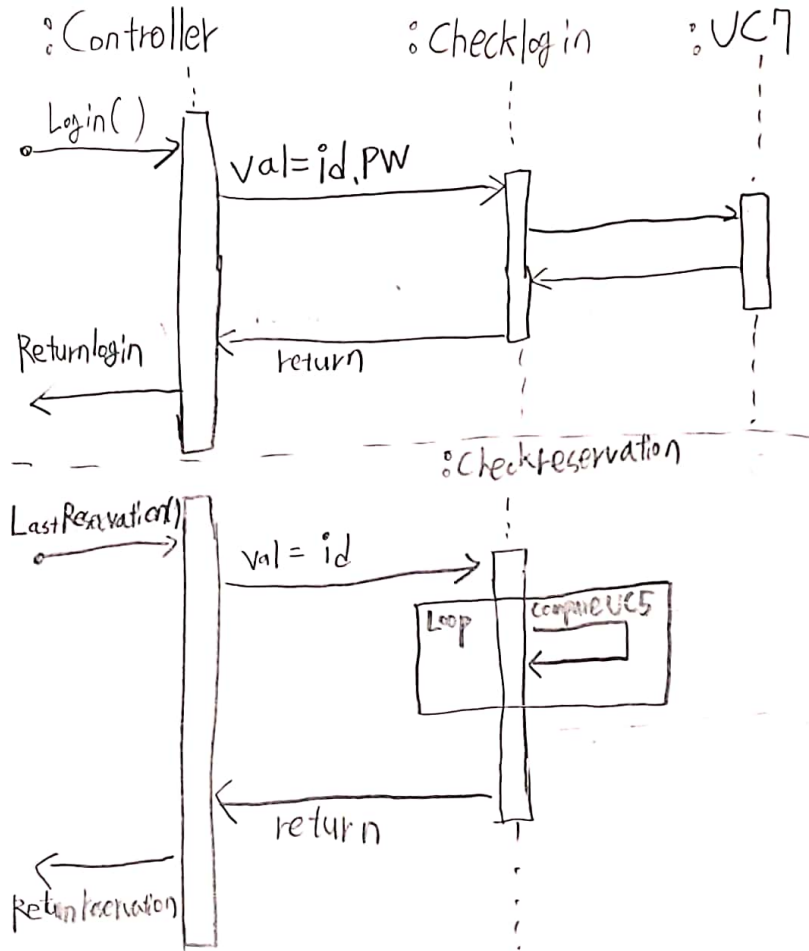 :Controller
:Checklogin
:UC7
Login()
val=id,PW
return
Returnlogin
:Checkreservation
LastReservation()
val = id
Loop
compareUC5
return
Returnreservation